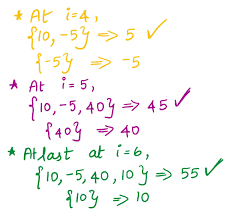 * At i=4,
{10, -5} => 5 ✓
{-5} => -5
* At i=5,
{10, -5, 40} => 45 ✓
{40} => 40
* Atlast at i=6,
{10, -5, 40, 10} => 55 ✓
{10} => 10